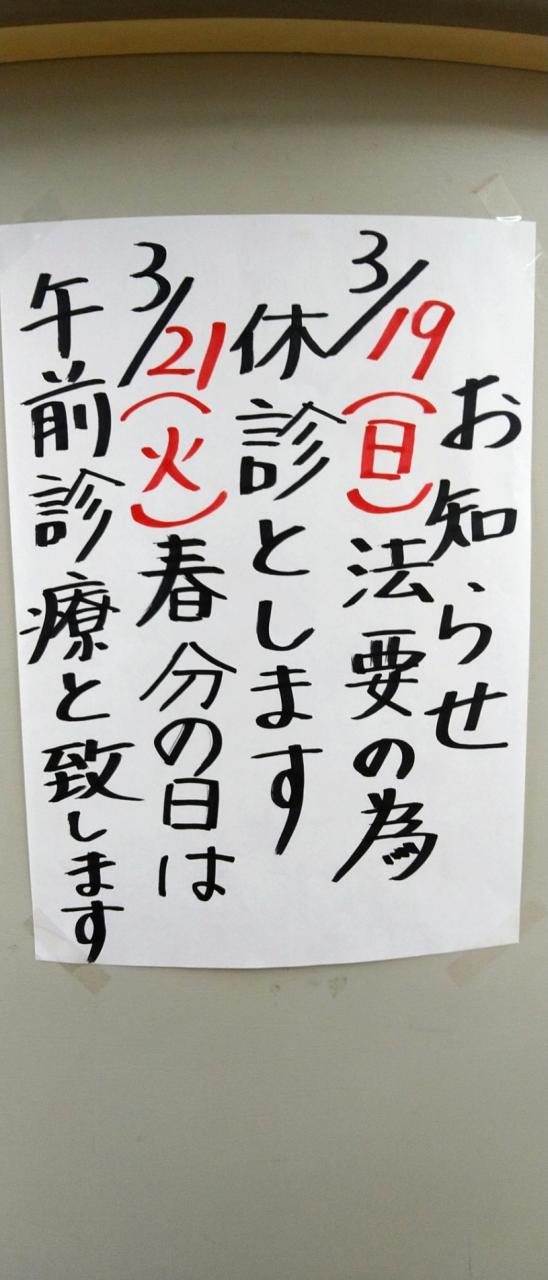 お知らせ
3/19(日)法要の為
休診とします
3/21(火)春分の日は
午前診療と致します